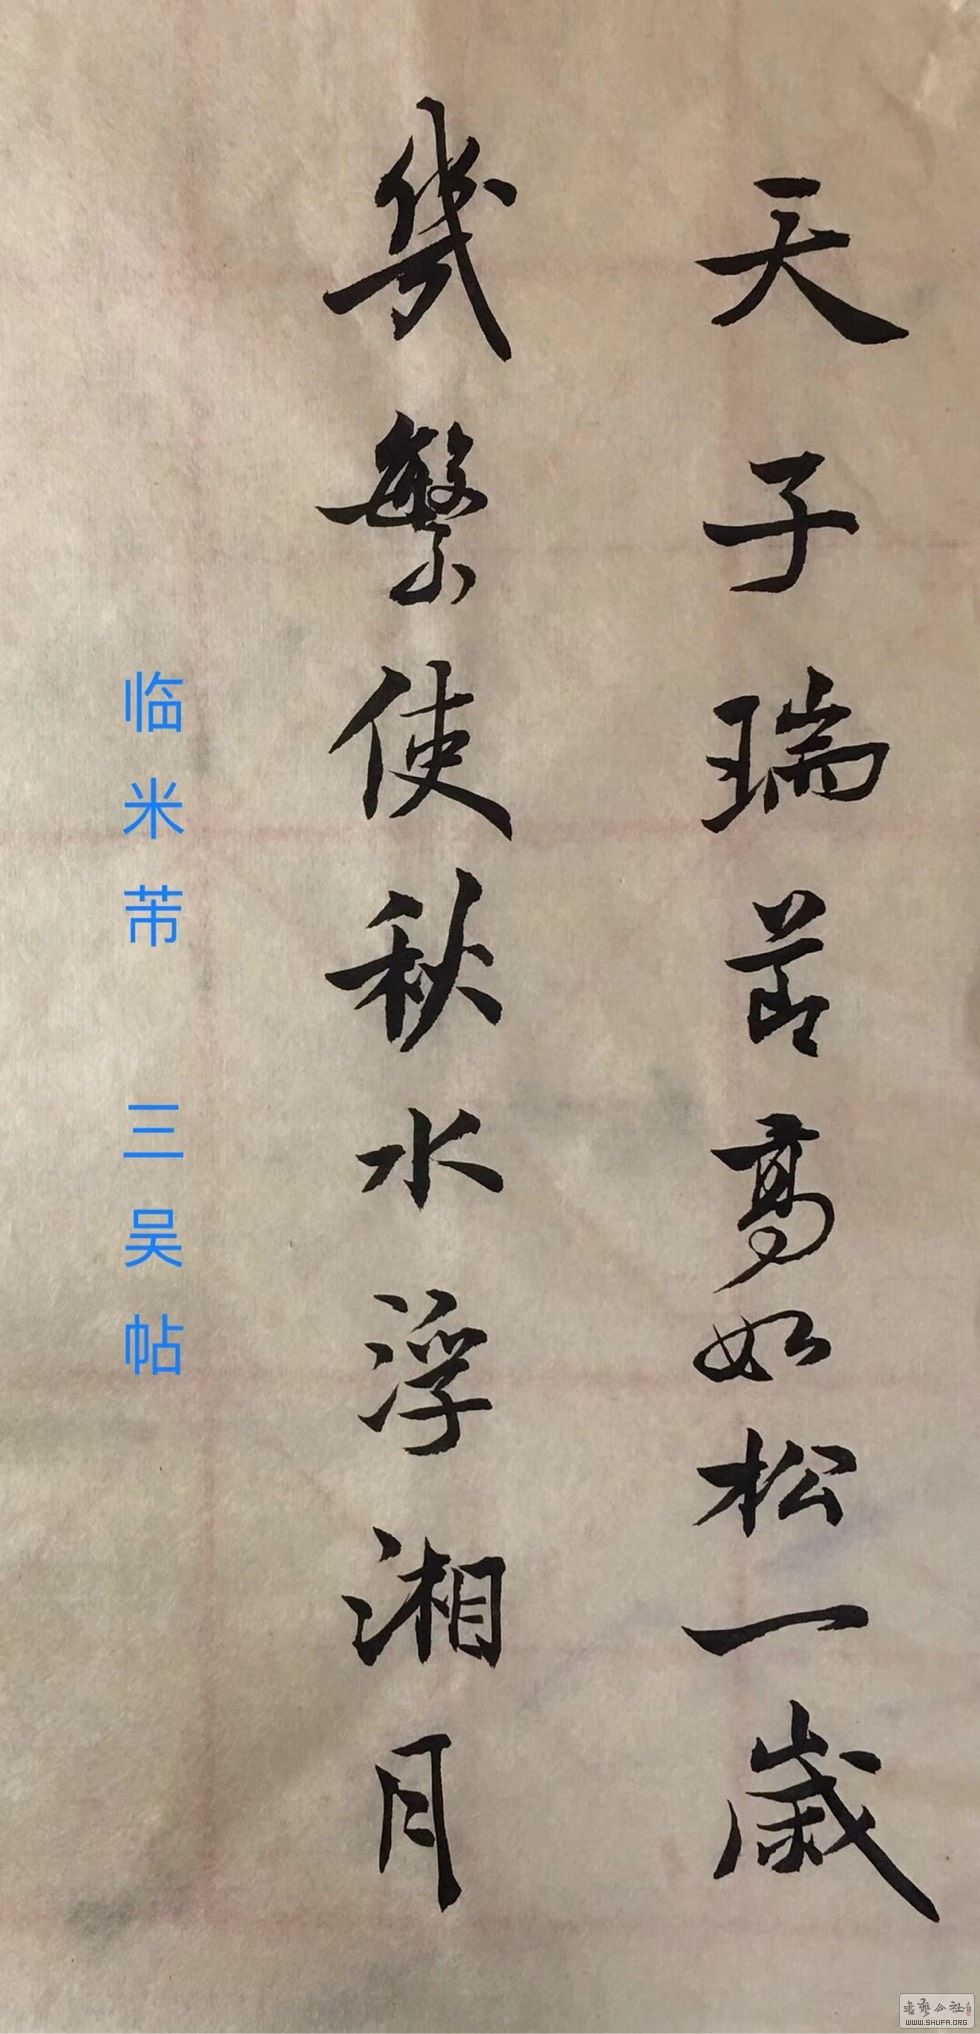 天子瑞節高如松一歲
幾繁使秋水浮湘月
临米芾 三吴帖
书艺公社
WWW.SHUFA.ORG